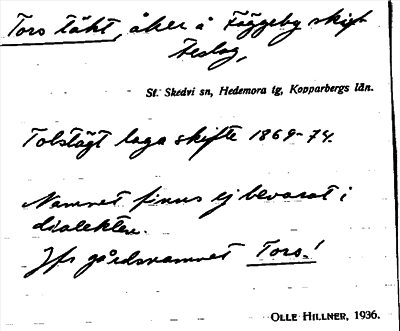 Tors täkt, åker å Fäggeby skift
teslag,
St. Skedvi sn, Hedemora tg, Kopparbergs län.
Tolvtägt laga skifte 1869-74.
Namnet finns ej bevarat i
dialekten.
Jfr gårdsnamnet Tors!
OLLE HILLNER, 1936.